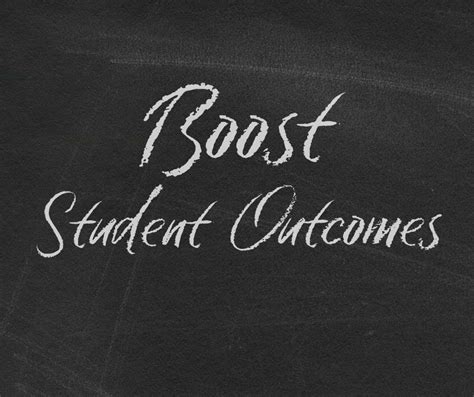 Boost
Student Outcomes